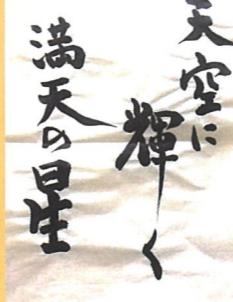 天空に
輝く
満天の星